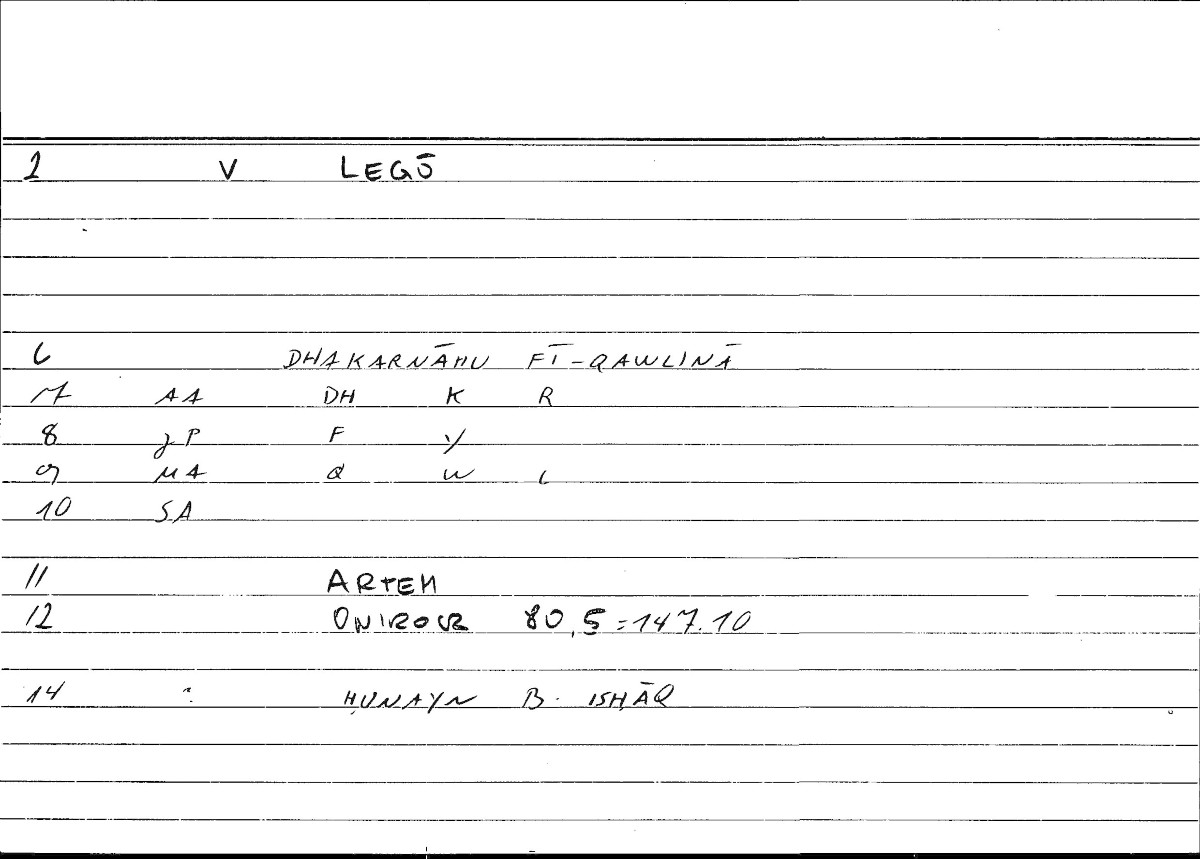 1 V LEGŌ
6 DHAKARNĀHU FĪ-QAWLINĀ
7 AA DH K R
8 JP F Y
9 MA Q W L
10 SA
11 ARTEM
12 ONIROCR 80,5=147.10
14 ḤUNAYN B. ISḤĀQ